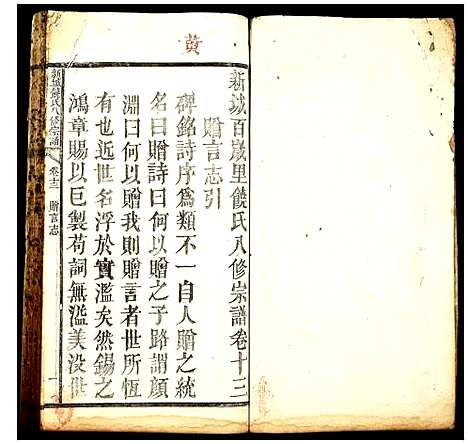 黄
新城百歲里饒氏八修宗譜卷十三
贈言志引
碑銘詩序為類不一自人贈之統
名曰贈詩曰何以贈之子路謂顏
淵曰何以贈我則贈言者世所恆
有也近世名浮於實濫矣然錫之
鴻章賜以巨製苟詞無溢美没世
新城饒氏八修宗譜
卷十三
贈言志
一